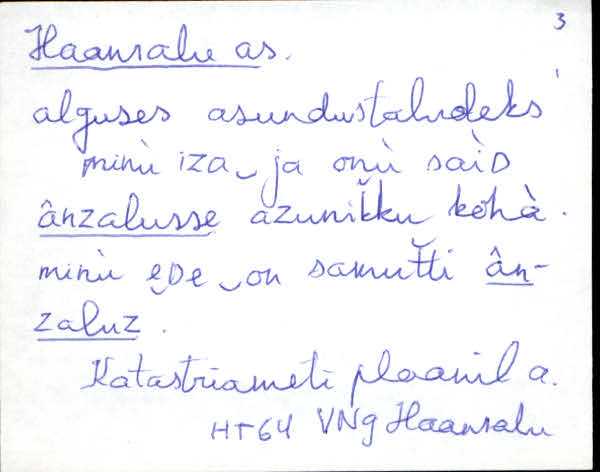 3
Haansalu as.
alguses asundustaludeks
minù iza‿ja onù saìD
ânzalusse azunik̆ku kohà.
minù ęDe‿on samut̆ti ân-
zaluz.
Katastriameti plaanil a.
HT64 VNg Haansalu